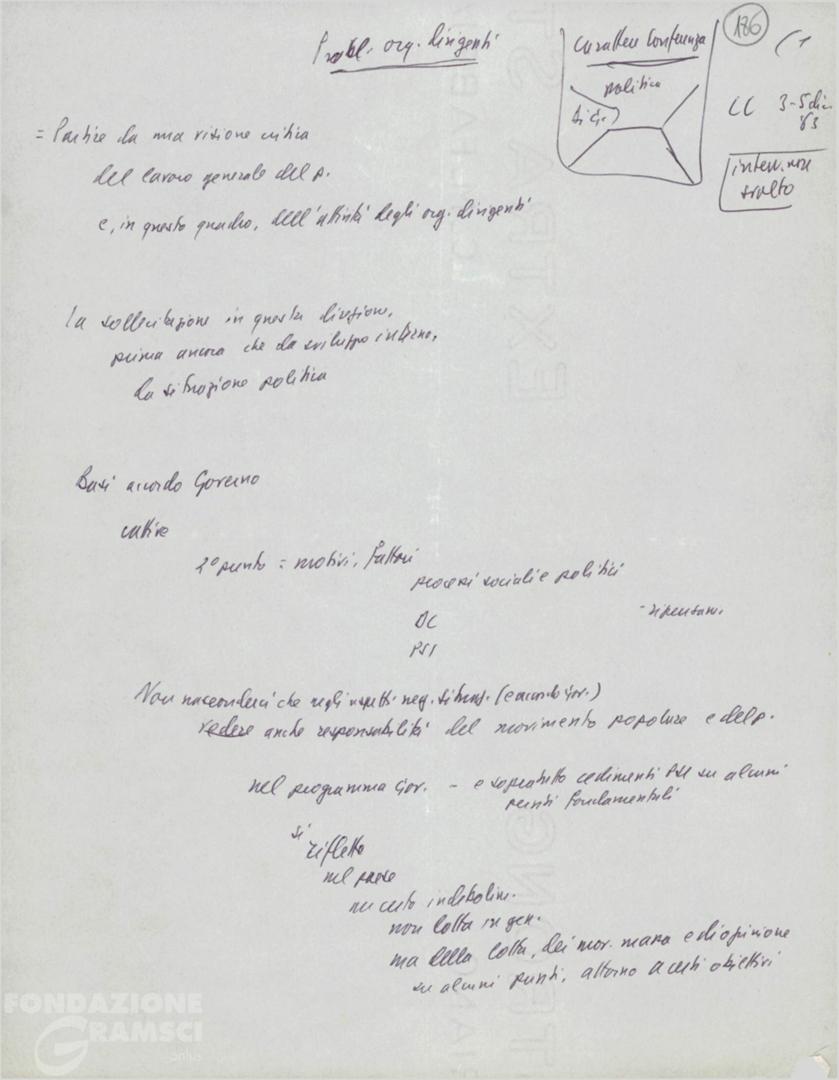 Probl. org. dirigenti
Carattere Conferenza
politica
186
CC 3-5 dic.
interv. non
svolto
= Partire da una visione critica
del lavoro generale del p.
e, in questo quadro, dell'attività degli org. dirigenti
La sollecitazione in questa direzione,
prima ancora che da sviluppo interno,
da situazione politica
Basi accordo Governo
cattive
2° punto = motivi, fattori
processi sociali e politici
DC
PSI
- ripensam.
Non nasconderci che negli aspetti neg. situaz. (e accordo gov.)
vedere anche responsabilità del movimento popolare e del p.
nel programma gov. - e sopratutto cedimenti PSI su alcuni
punti fondamentali
si
riflette
nel paese
un certo indebolim.
non lotta in gen.
ma della lotta, dei mov. massa e di opinione
su alcuni punti, attorno a certi obiettivi
FONDAZIONE
GRAMSCI
onlus